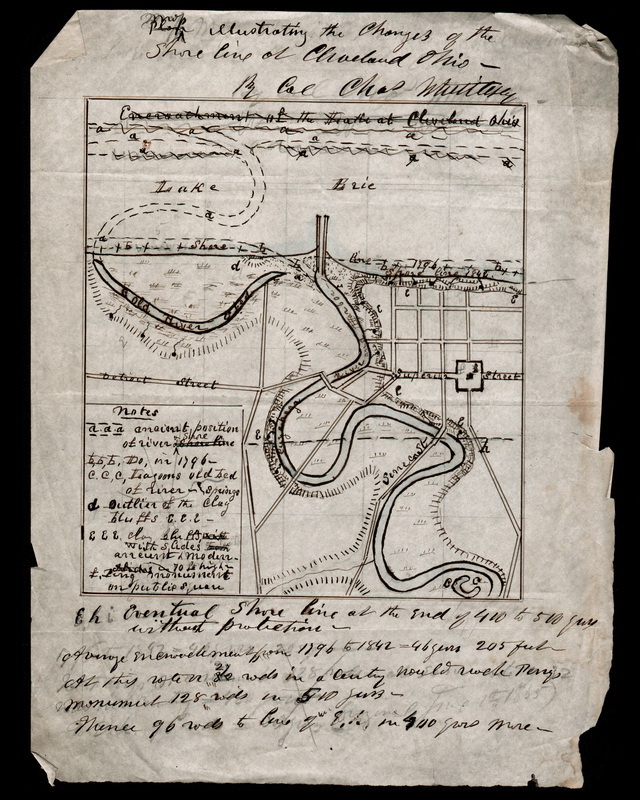 Map illustrating the Changes of the
Shore line at Cleveland Ohio —
By Col Chas Whittlesey
Encroachment of the Lake at Cleveland Ohio
a a a a
a a a a
Lake Erie
a
a
b Shore b
d
b 1796 b
Shore line 1842
c
Old River Bed
River
c
Detroit Street
Superior Street
e
Cuyahoga
e h
Vineyard
Notes
a.a.a ancient position
of river shore line
b,b,b, Do, in 1796 —
C.C.C, Lagoons old bed
of river — Springs
d Outlier of the Clay
bluffs E.E.E —
E E E, clay bluffs
with slides
ancient & modern
slides — 70 ft high —
f, Perry monument
on public square
E h Eventual Shore line at the End of 410 to 510 years
without protection —
Average Encroachment from 1796 to 1842 = 46 years 205 feet
At this rate or 27 rods in a century would reach Perrys
monument 128 rods in 510 years —
Thence 96 rods to line of E.h. in 400 years more —